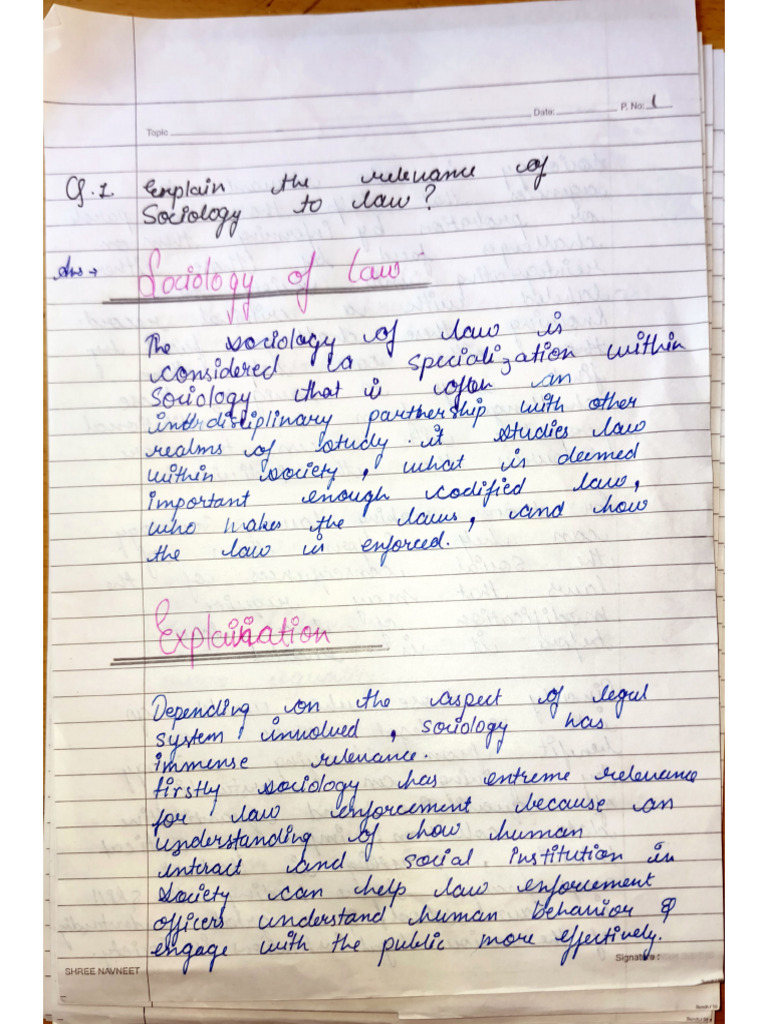 Topic
Date:
P. No: 1
Q.1. Explain the relevance of
Sociology to law?
Ans →
Sociology of law
The sociology of law is
considered a specialization within
Sociology that is often an
interdisciplinary partnership with other
realms of study. it studies law
within society, what is deemed
important enough codified law,
who makes the laws, and how
the law is enforced.
Explaination
Depending on the aspect of legal
system involved, sociology has
immense relevance.
firstly sociology has extreme relevance
for law enforcement because an
understanding of how human
interact and social institution in
society can help law enforcement
officers understand human behavior &
engage with the public more effectively.
SHREE NAVNEET
Signature :